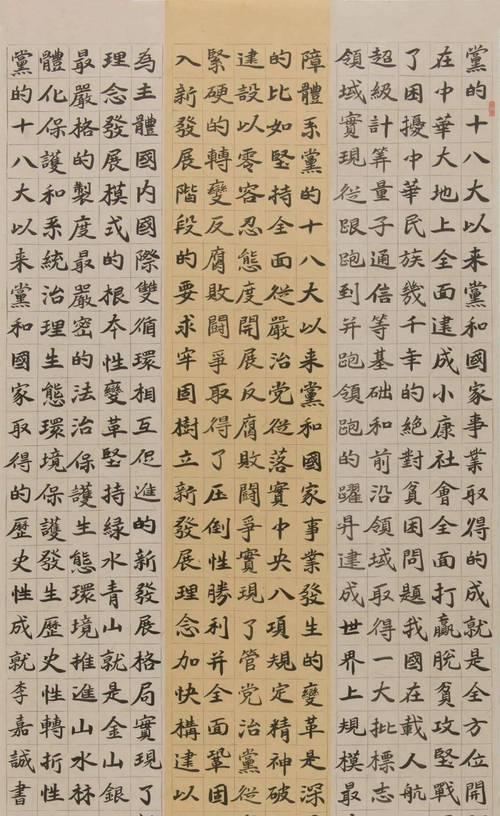 黨的十八大以來黨和國家事業取得的成就是全方位開
在中華大地上全面建成小康社會全面打贏脫貧攻堅戰
了困擾中華民族幾千年的絕對貧困問題我國在載人航
超級計筭量子通信等基础和前沿領域取得一大批標志
領域實現從跟跑到并跑領跑的躍升建成世界上規模最
障體系黨的十八大以來黨和國家事業發生的變革是深
的比如堅持全面從嚴治党從落實中央八項規定精神破
建設以零容忍態度開展反腐敗鬪爭實現了管党治黨從
緊硬的轉變反腐敗鬪爭取得了压倒性勝利并全面鞏固
入新發展階段的要求牢固樹立新發展理念加快構建以
為主體國內國際雙循環相互促進的新發展格局實現了
理念發展模式的根本性變革堅持綠水青山就是金山銀
最嚴格的製度最嚴密的法治保護生態環境推進山水林
體化保護和系統治理生態環境保護發生歷史性轉折性
黨的十八大以來黨和國家取得的歷史性成就李嘉誠書